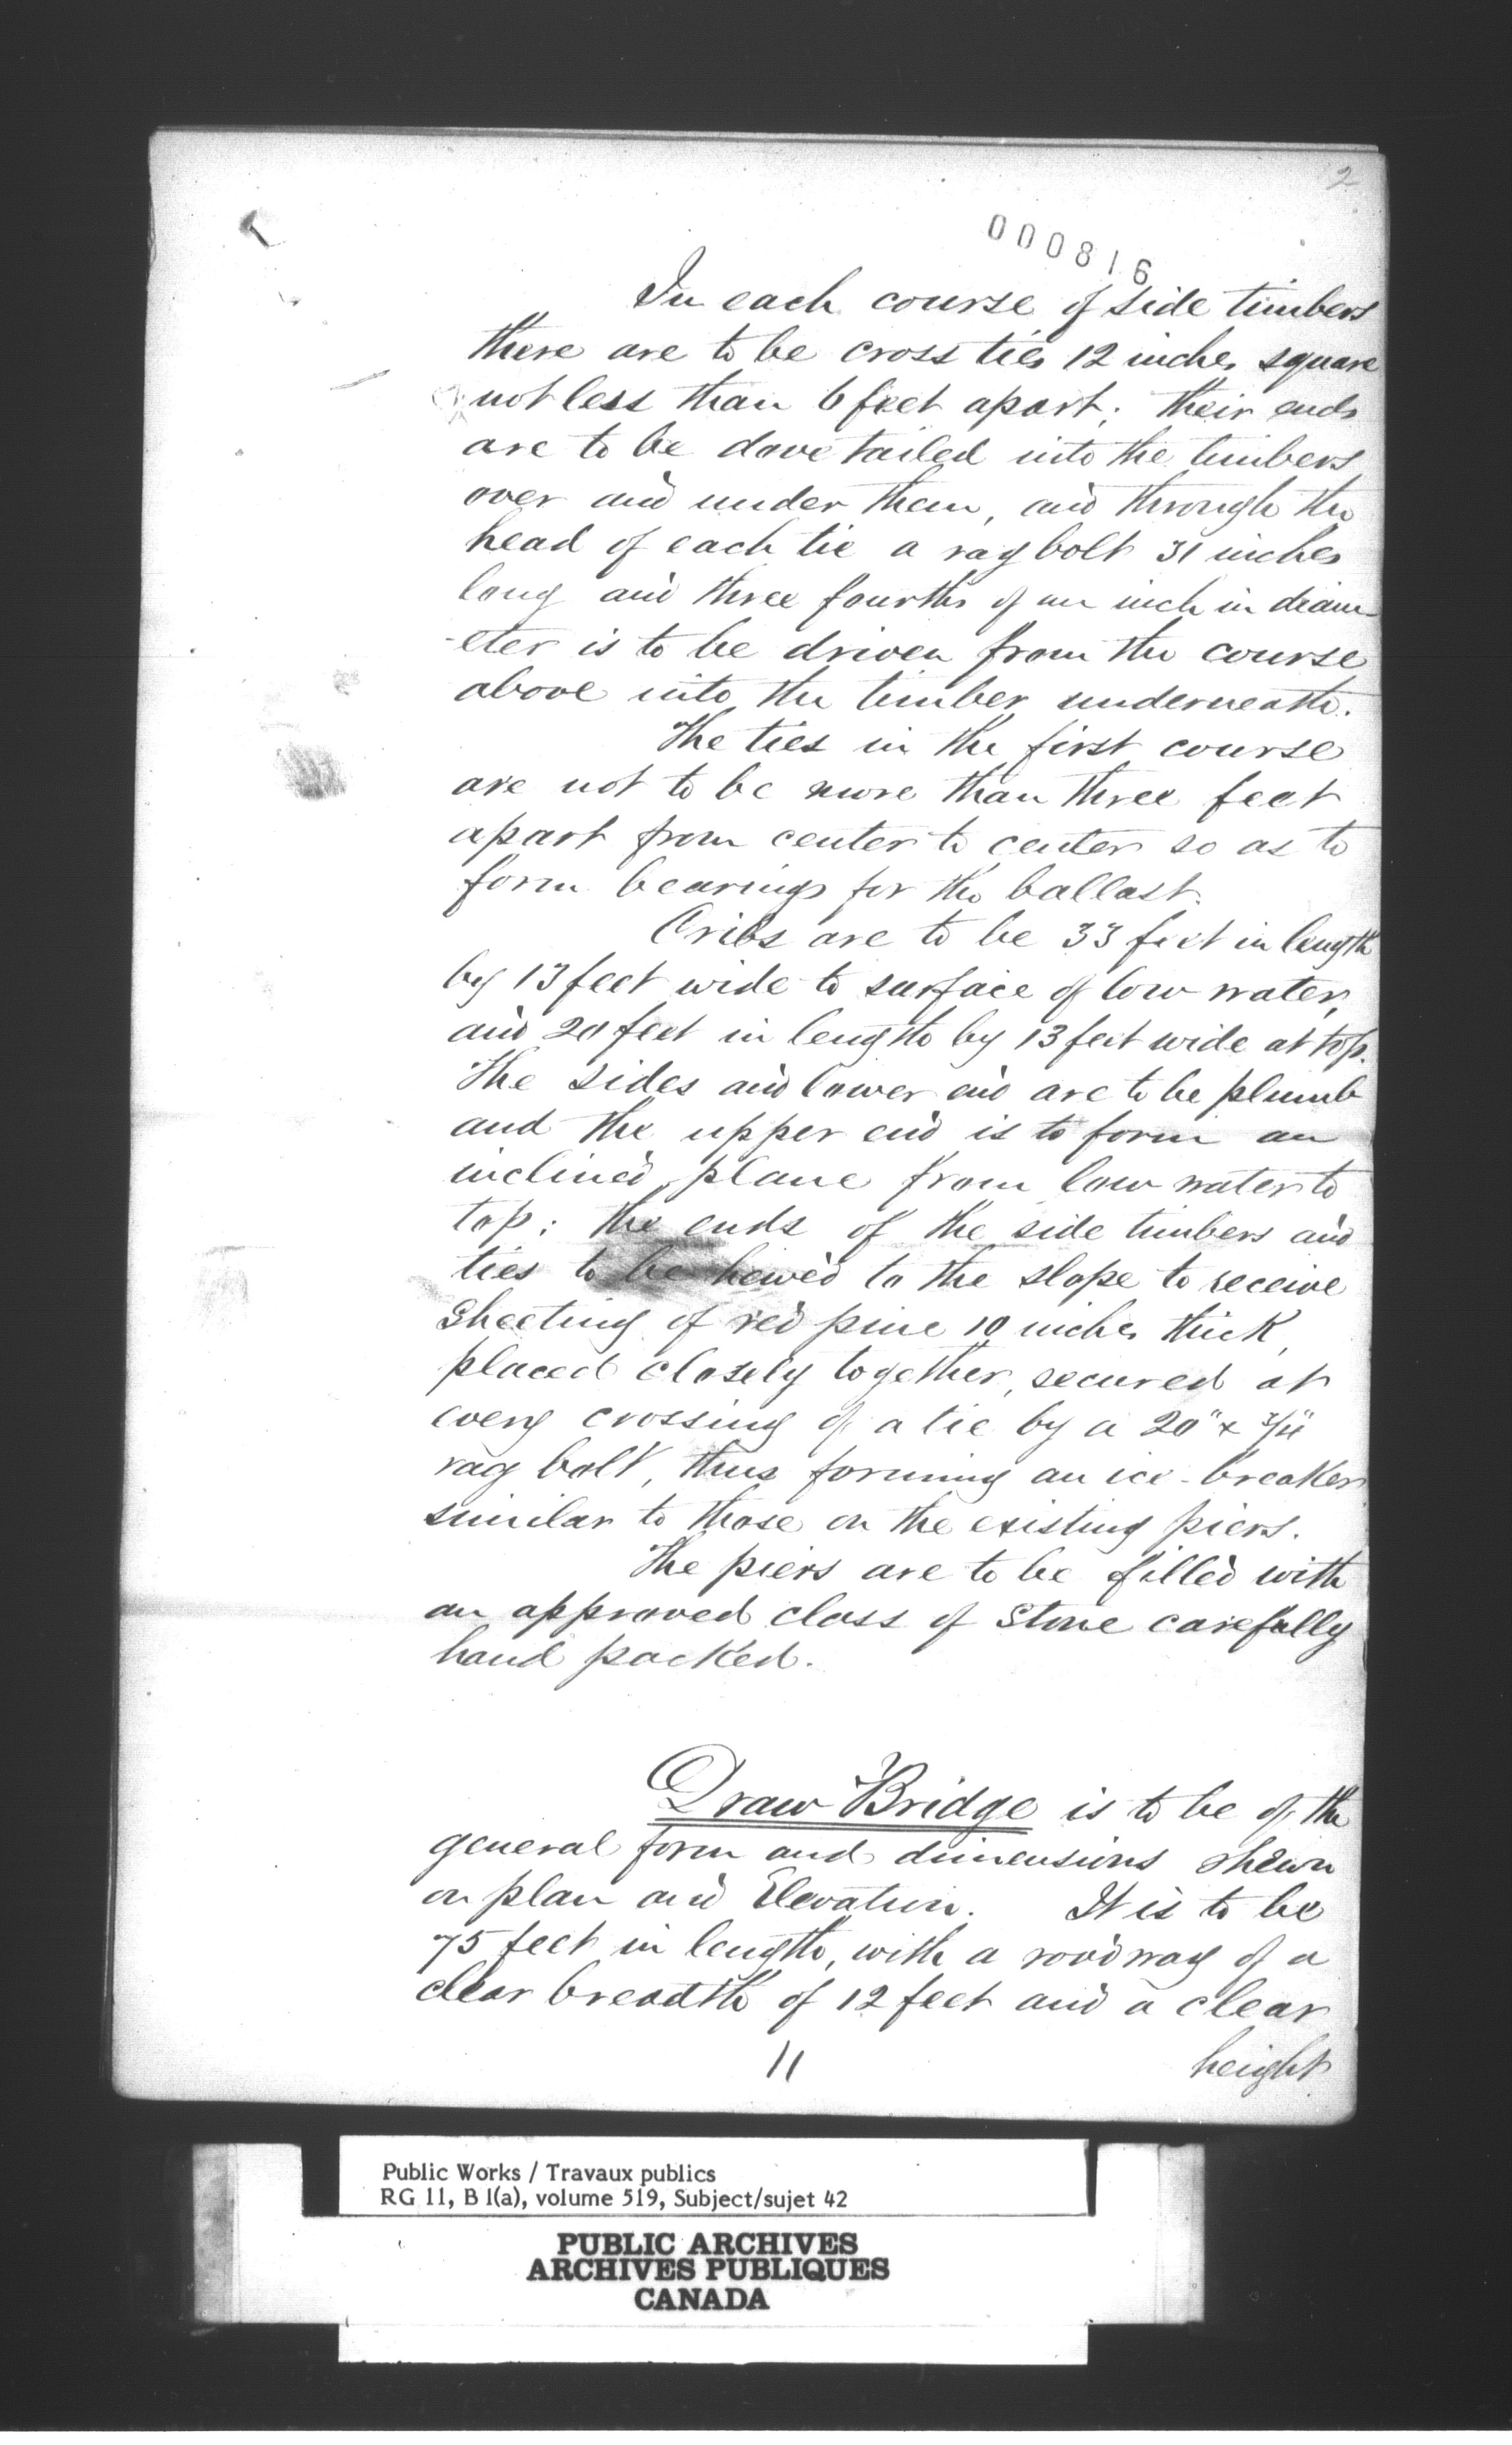 2
000816
In each course of side timbers
there are to be cross ties 12 inches square
not less than 6 feet apart; their ends
are to be dove tailed into the timbers
over and under them, and through the
head of each tie a rag bolt 31 inches
long and three fourths of an inch in diam-
-eter is to be driven from the course
above into the timber underneath.
The ties in the first course
are not to be more than three feet
apart from center to center so as to
form bearings for the ballast.
Cribs are to be 33 feet in length
by 13 feet wide to surface of low water,
and 20 feet in length by 13 feet wide at top.
The sides and lower end are to be plumb
and the upper end is to form an
inclined plane from low water to
top; the ends of the side timbers and
ties to be hewed to the slope to receive
Sheeting of red pine 10 inches thick,
placed closely together, secured at
every crossing of a tie by a 20" x 3/4"
rag bolt, thus forming an ice-breaker
similar to those on the existing piers.
The piers are to be filled with
an approved class of Stone carefully
hand packed.
Draw Bridge is to be of the
general form and dimensions shewn
on plan and Elevation. It is to be
75 feet in length, with a roadway of a
clear breadth of 12 feet and a clear
11
height
Public Works / Travaux publics
RG 11, B 1(a), volume 519, Subject/sujet 42
PUBLIC ARCHIVES
ARCHIVES PUBLIQUES
CANADA